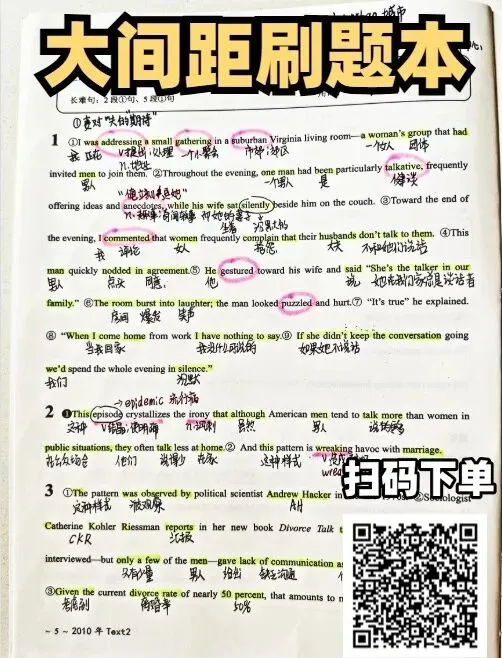 城市
大间距刷题本
长难句：2段①句、5段①句
1 ①I was addressing a small gathering in a suburban Virginia living room—a woman's group that had
我 正在 小聚会 市郊 郊区 一个女人 团体
invited men to join them. ②Throughout the evening, one man had been particularly talkative, frequently
男人 一个男人 是 健谈
offering ideas and anecdotes, while his wife sat silently beside him on the couch. ③Toward the end of
the evening, I commented that women frequently complain that their husbands don't talk to them. ④This
我 评论 女人 抱怨 丈夫 不和她们说话
man quickly nodded in agreement. ⑤ He gestured toward his wife and said "She's the talker in our
男人 点头 同意 他 说
family." ⑥The room burst into laughter; the man looked puzzled and hurt.⑦ "It's true" he explained.
房间 爆发 笑声
⑧ "When I come home from work I have nothing to say.⑨ If she didn't keep the conversation going
当我回家 我没什么可说的 如果她不说话
we'd spend the whole evening in silence."
我们 沉默
→epidemic 流行病
2 ①This episode crystallizes the irony that although American men tend to talk more than women in
这种 n.讽刺 虽然 男人
public situations, they often talk less at home.② And this pattern is wreaking havoc with marriage.
他们 说得少 在家 这种样式
扫码下单
3 ①The pattern was observed by political scientist Andrew Hacker in ②Sociologist
这种样式 被观察 AH
Catherine Kohler Riessman reports in her new book Divorce Talk
CKR 汇报
interviewed—but only a few of the men—gave lack of communication as
只有少量 男人 给出 缺乏沟通
③Given the current divorce rate of nearly 50 percent, that amounts to
考虑到 离婚率 50%
~ 5 ~ 2010 年 Text2